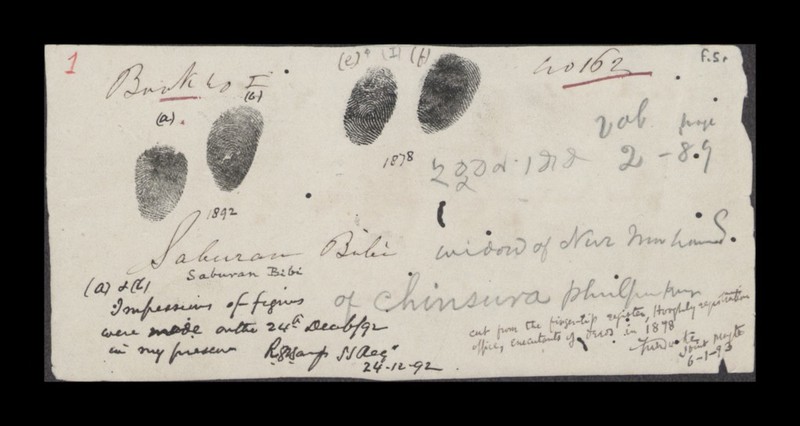 1
Book No I
(a) (b)
(e) (I) (f)
No 162
F.S.
1878
1892
vol page
2 - 89
Saburan Bibi widow of Nur
Saburan Bibi
of Chinsura
(a) & (b)
Impressions of figures
were made on the 24th Decb/92
in my presence
24-12-92
cut from the finger-tip register, Hooghly registration
office, executants of deeds in 1878
6-1-93